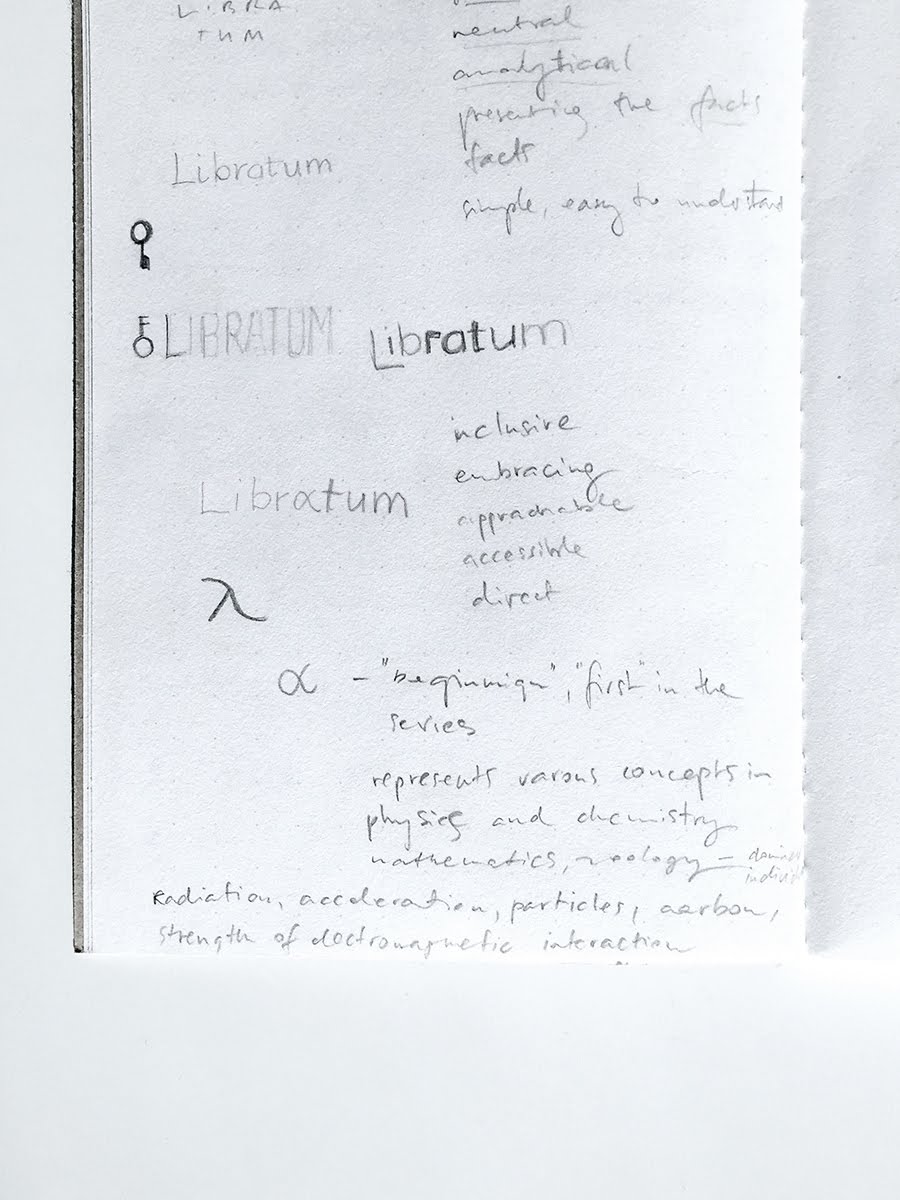 LIBRA
TUM
neutral
analytical
presenting the facts
facts
Libratum
simple, easy to understand
LIBRATUM
Libratum
inclusive
embracing
Librαtum
approachable
accessible
direct
λ
α - "beginnign", "first" in the
series
represents varous concepts in
physics and chemistry
mathematics, zoology -
Radiation, acceleration, particles, carbon,
strength of electromagnetic interaction